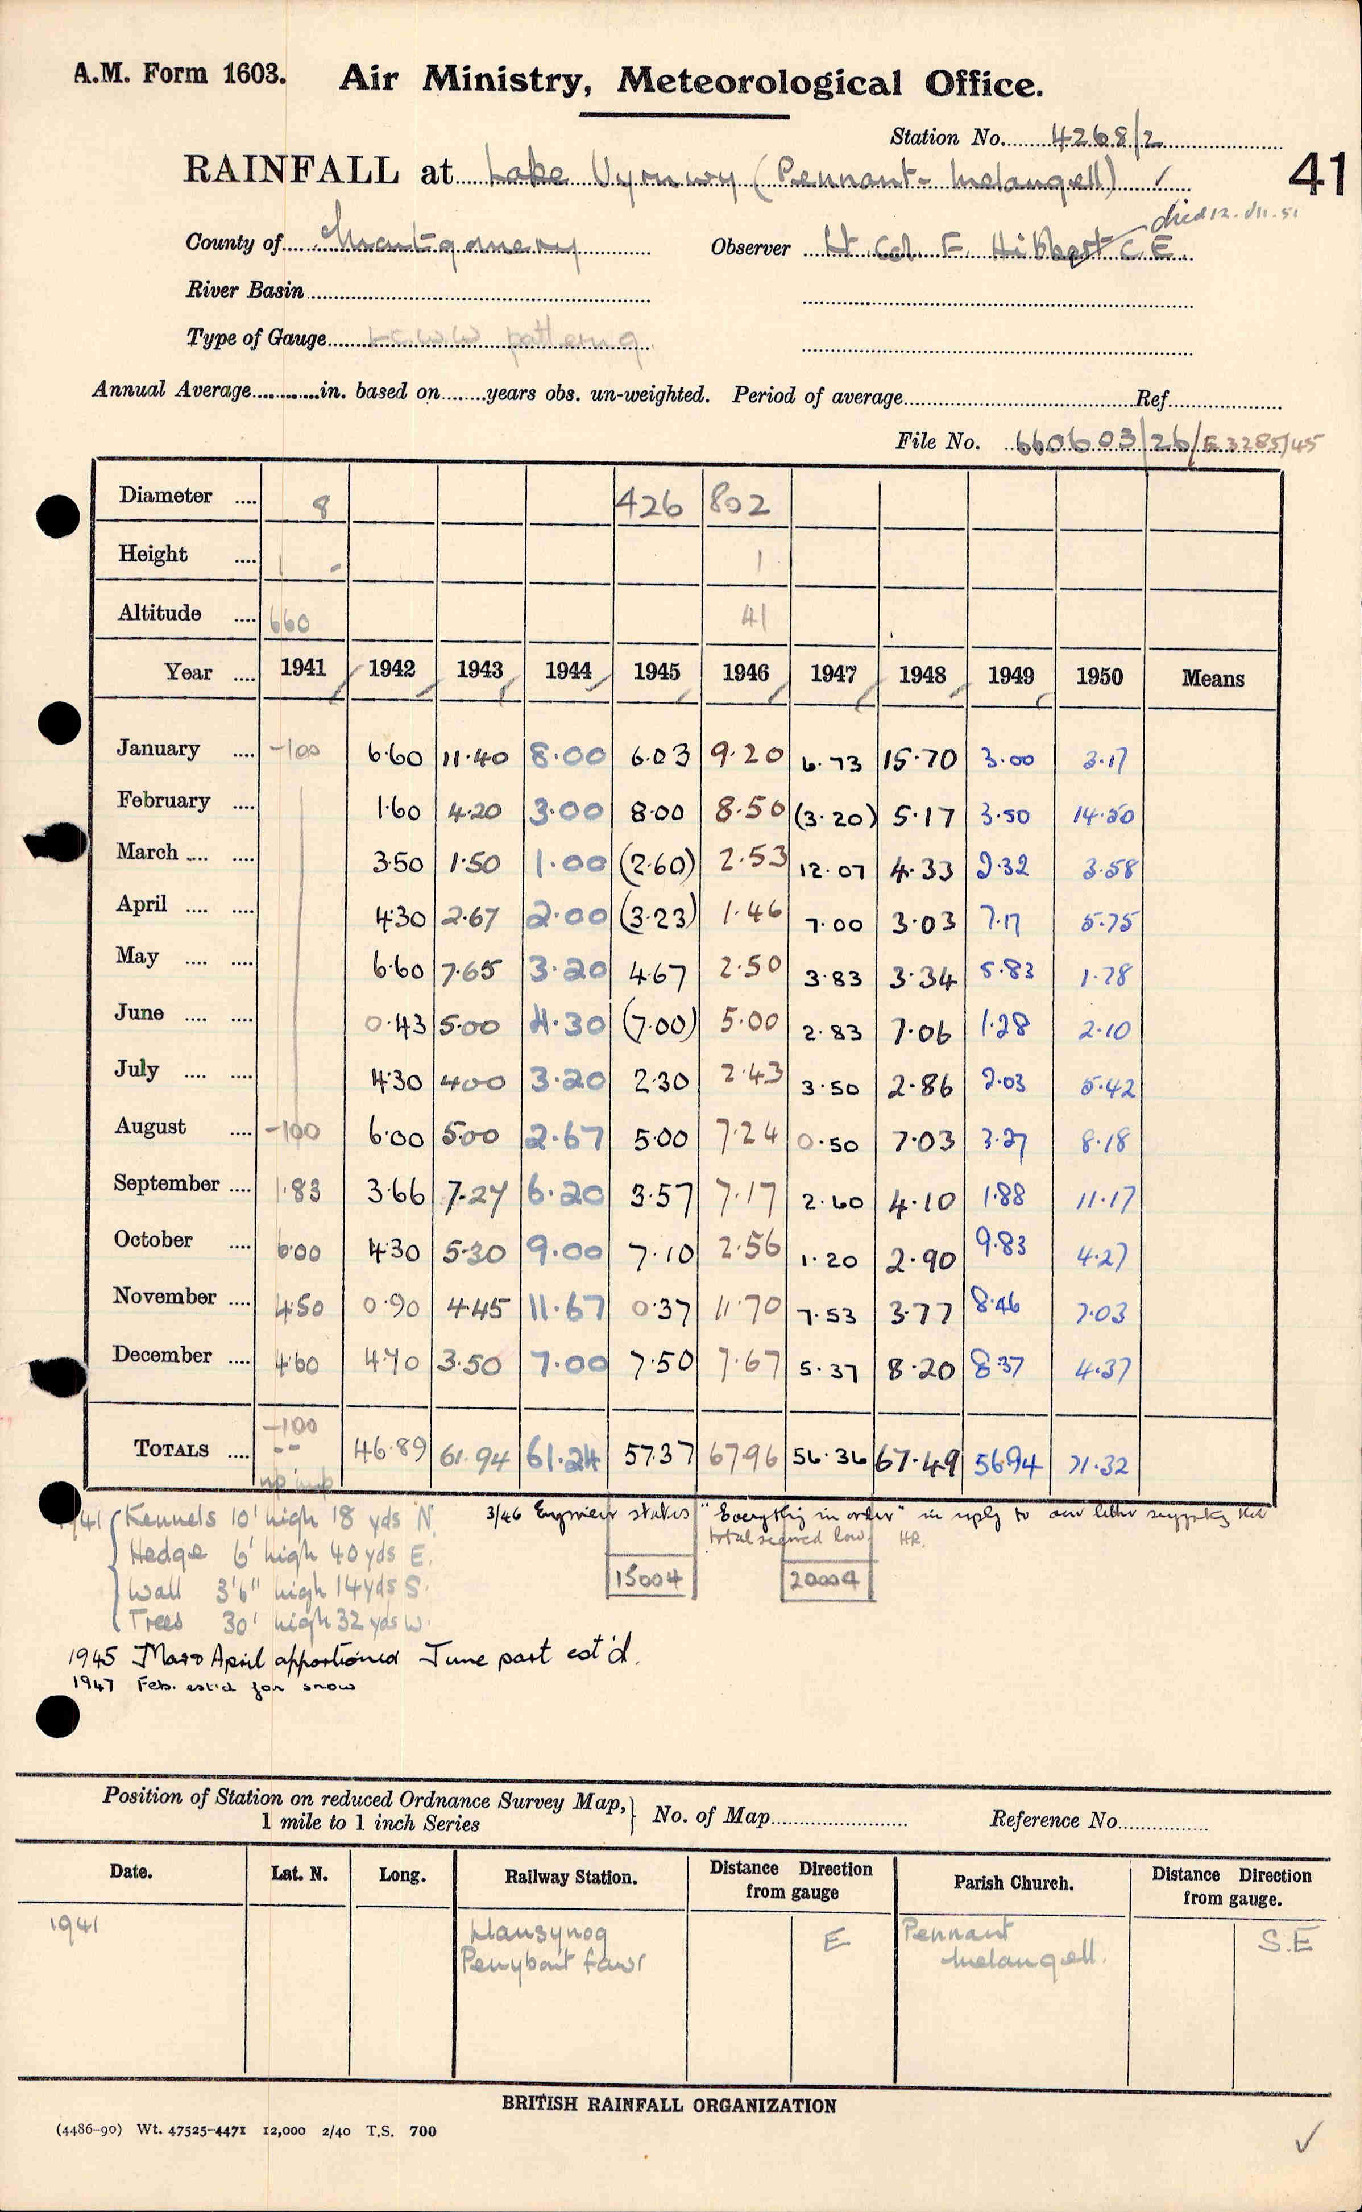 A.M. Form 1603. Air Ministry, Meteorological Office.
Station No. 4268/2
RAINFALL at Lake Vyrnwy (Pennant-Melangell) ✓
41
died 12.VII.51
County of Montgomery Observer Lt Col. F. Hibbert C.E.
River Basin
Type of Gauge L.C.W.W pattern
Annual Average in. based on years obs. un-weighted. Period of average Ref.
File No. 660603/26/E3285/45
Diameter .... 8 426 802
Height .... 1 - 1
Altitude .... 660 41
Year .... 1941 1942 1943 1944 1945 1946 1947 1948 1949 1950 Means
January .... -100 6.60 11.40 8.00 6.03 9.20 6.73 15.70 3.00 3.17
February .... 1.60 4.20 3.00 8.00 8.50 (3.20) 5.17 3.50 14.50
March .... .... 3.50 1.50 1.00 (2.60) 2.53 12.07 4.33 2.32 3.58
April .... .... 4.30 2.67 2.00 (3.23) 1.46 7.00 3.03 7.17 5.75
May .... .... 6.60 7.65 3.20 4.67 2.50 3.83 3.34 5.83 1.78
June .... .... 0.43 5.00 4.30 (7.00) 5.00 2.83 7.06 1.28 2.10
July .... .... 4.30 4.00 3.20 2.30 2.43 3.50 2.86 2.03 5.42
August .... -100 6.00 5.00 2.67 5.00 7.24 0.50 7.03 3.27 8.18
September .... 1.83 3.66 7.27 6.20 3.57 7.17 2.60 4.10 1.88 11.17
October .... 6.00 4.30 5.30 9.00 7.10 2.56 1.20 2.90 9.83 4.27
November .... 4.50 0.90 4.45 11.67 0.37 11.70 7.53 3.77 8.46 7.03
December .... 4.60 4.70 3.50 7.00 7.50 7.67 5.37 8.20 8.37 4.37
-100
TOTALS .... -- 46.89 61.94 61.24 57.37 67.96 56.36 67.49 56.94 71.32
1941 Kennels 10' high 18 yds N.
Hedge 6' high 40 yds E.
Wall 3'6" high 14 yds S.
Trees 30' high 32 yds W.
3/46 Engineer states "Everything in order" in reply to our letter suggesting that
total seemed low. HR.
15004 20004
1945 Mar & April apportioned June part est'd.
1947 Feb. est'd for snow
Position of Station on reduced Ordnance Survey Map, 1 mile to 1 inch Series No. of Map Reference No.
Date. Lat. N. Long. Railway Station. Distance Direction from gauge Parish Church. Distance Direction from gauge.
1941 Llansynog E Pennant S.E
Penybont fawr Melangell.
BRITISH RAINFALL ORGANIZATION
(4486-90) Wt. 47525-4471 12,000 2/40 T.S. 700
✓